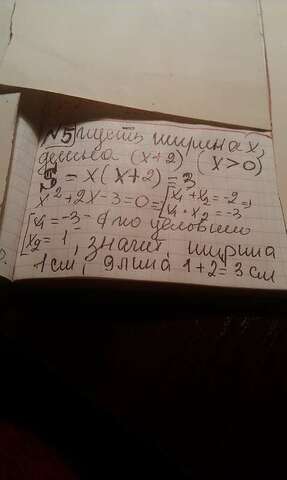 N5 пусть ширина x,
длина (x+2) (x>0)
S = x(x+2) = 3
x²+2x-3=0 => [x₁+x₂=-2 =>
[x₁·x₂=-3
[x₁=-3 - по условию
[x₂=1, значит, ширина
1 см, длина 1+2=3 см